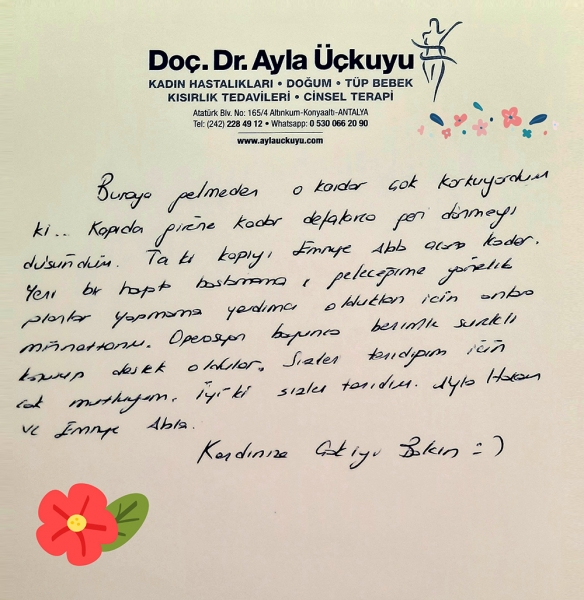 Doç. Dr. Ayla Üçkuyu
KADIN HASTALIKLARI • DOĞUM • TÜP BEBEK
KISIRLIK TEDAVİLERİ • CİNSEL TERAPİ
Atatürk Blv. No: 165/4 Altınkum-Konyaaltı-ANTALYA
Tel: (242) 228 49 12 • Whatsapp: 0 530 066 20 90
www.aylauckuyu.com
Buraya gelmeden o kadar çok korkuyordum
ki.. Kapıda girene kadar defalarca geri dönmeyi
düşündüm. Ta ki kapıyı Emine Abla açana kadar.
Yeni bir hayata başlamama, geleceğime yönelik
planlar yapmama yardımcı oldukları için onlara
minnettarım. Operasyon boyunca benimle sürekli
konuşup destek oldular. Sizleri tanıdığım için
çok mutluyum. İyi ki sizleri tanıdım. Ayla Hanım
ve Emine Abla.
Kendinize Çok iyi Bakın :)